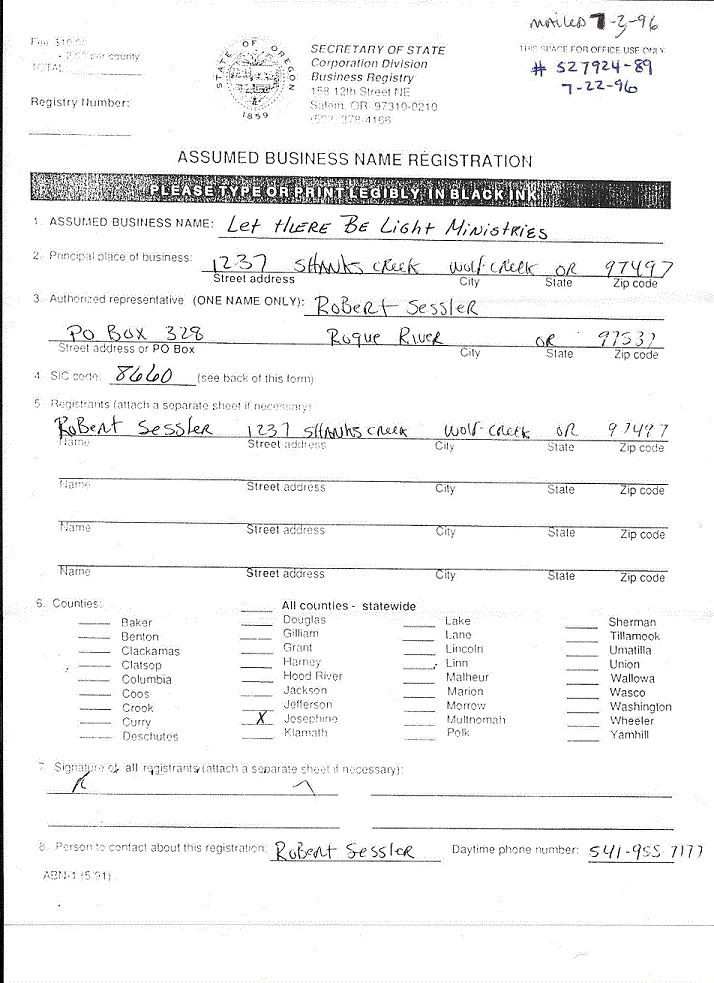 mailed 7-2-96
Fee: $10.00
+ 2.00 per county
TOTAL
THIS SPACE FOR OFFICE USE ONLY
# 527924-89
7-22-96
STATE OF OREGON
1859
SECRETARY OF STATE
Corporation Division
Business Registry
158 12th Street NE
Salem, OR 97310-0210
(503) 378-4166
Registry Number:
ASSUMED BUSINESS NAME REGISTRATION
PLEASE TYPE OR PRINT LEGIBLY IN BLACK INK
1. ASSUMED BUSINESS NAME: Let THERE Be Light Ministries
2. Principal place of business: 1237 SHANKS CREEK WOLF CREEK OR 97497
Street address City State Zip code
3. Authorized representative (ONE NAME ONLY): Robert Sessler
PO Box 328 Rogue River OR 97537
Street address or PO Box City State Zip code
4. SIC code: 8660 (see back of this form)
5. Registrants (attach a separate sheet if necessary)
Robert Sessler 1237 SHANKS CREEK WOLF CREEK OR 97497
Name Street address City State Zip code
Name Street address City State Zip code
Name Street address City State Zip code
Name Street address City State Zip code
6. Counties: All counties - statewide
Baker Douglas Lake Sherman
Benton Gilliam Lane Tillamook
Clackamas Grant Lincoln Umatilla
Clatsop Harney Linn Union
Columbia Hood River Malheur Wallowa
Coos Jackson Marion Wasco
Crook Jefferson Morrow Washington
Curry X Josephine Multnomah Wheeler
Deschutes Klamath Polk Yamhill
7. Signature of all registrants (attach a separate sheet if necessary):
8. Person to contact about this registration: Robert Sessler Daytime phone number: 541-955-7177
ABN-1 (5/91)